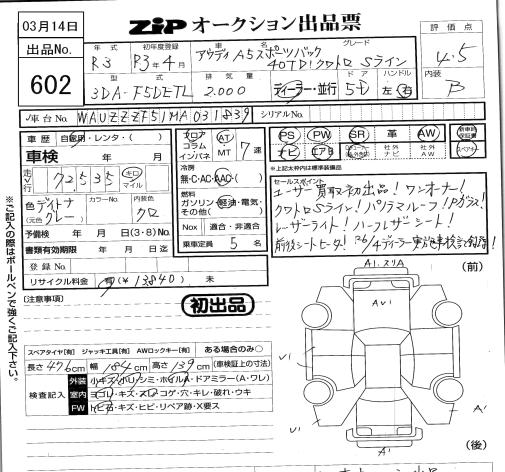 03月14日
ZIP オークション出品票
出品No.
602
年式
R3
初年度登録
R3年4月
車名
アウディ A5スポーツバック
グレード
40TDI クワトロ Sライン
評価点
4.5
型式
3DA-F5DETL
排気量
2.000
ディーラー・並行
ドア
5D
ハンドル
左・右
内装
B
車台No. WAUZZZF51MA031839
シリアルNo.
車歴 自家用・レンタ・( )
車検 年 月
走行 72,535 キロ マイル
色 (元色) デイトナグレー
カラーNo.
内装色 クロ
予備検 年 月 日(3・8)No.
書類有効期限 年 月 日迄
登録No.
リサイクル料金 有(¥13840) 未
フロア コラム インパネ
AT MT 7速
冷房
無・C・AC・AAC・( )
燃料
ガソリン・軽油・電気・その他( )
Nox 適合・非適合
乗車定員 5名
PS PW SR 革 AW 新車時保証書
ナビ エアB 社外ナビ 社外AW
*上記太わ内は標準装備品
セールスポイント
ユーザー買取初出品!ワンオーナー!
クワトロSライン!パノラマルーフ!Pガラス!
レーザーライト!ハーフレザーシート!
前後シートヒータ!
(注意事項)
初出品
スペアタイヤ[有] ジャッキ工具[有] AWロックキー[有] ある場合のみ○
長さ476cm 幅184cm 高さ139cm (車検証上の寸法)
検査記入
外装 小キズ・小リ・シミ・ホイルA・ドアミラー(A・ワレ)
室内 ヨゴレ・キズ・スレ・コゲ・穴・キレ・破れ・ウキ
FW トビ石・キズ・ヒビ・リペア跡・X要ス
※ご記入の際はボールペンで強くご記入下さい。
(前)
A1.スリA
AU1
U1
U1
A1
A1
(後)